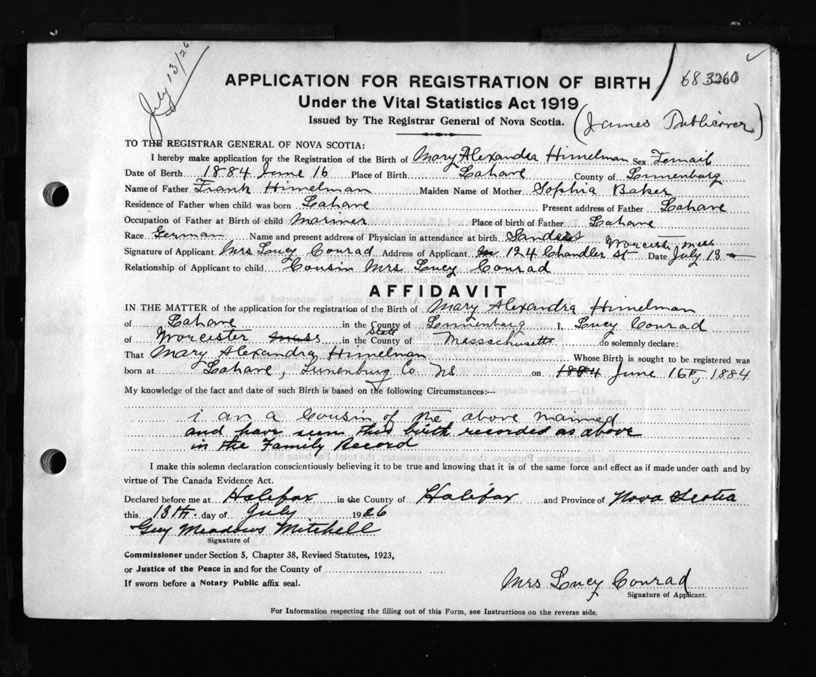 July 13/26
APPLICATION FOR REGISTRATION OF BIRTH
683260
Under the Vital Statistics Act 1919
Issued by The Registrar General of Nova Scotia.
(James Publicover)
TO THE REGISTRAR GENERAL OF NOVA SCOTIA:
I hereby make application for the Registration of the Birth of Mary Alexandra Himelman Sex Femail
Date of Birth 1884 June 16 Place of Birth Lahave County of Lunenburg
Name of Father Frank Himelman Maiden Name of Mother Sophia Baker
Residence of Father when child was born Lahave Present address of Father Lahave
Occupation of Father at Birth of child Mariner Place of birth of Father Lahave
Race German Name and present address of Physician in attendance at birth
Signature of Applicant Mrs Lucy Conrad Address of Applicant 124 Chandler St Worcester Mass Date July 13
Relationship of Applicant to child Cousin Mrs Lucy Conrad
AFFIDAVIT
IN THE MATTER of the application for the registration of the Birth of Mary Alexandra Himelman
of Lahave in the County of Lunenburg I, Lucy Conrad
of Worcester Mass in the County State of Massachusetts do solemnly declare:
That Mary Alexandra Himelman Whose Birth is sought to be registered was
born at Lahave, Lunenburg Co. NS on 1884 June 16th, 1884
My knowledge of the fact and date of such Birth is based on the following Circumstances:—
i am a Cousin of the above named
and have seen this birth recorded as above
in the Family Record
I make this solemn declaration conscientiously believing it to be true and knowing that it is of the same force and effect as if made under oath and by
virtue of The Canada Evidence Act.
Declared before me at Halifax in the County of Halifax and Province of Nova Scotia
this 13th day of July 1926
Guy Meadows Mitchell
Signature of
Commissioner under Section 5, Chapter 38, Revised Statutes, 1923,
or Justice of the Peace in and for the County of
If sworn before a Notary Public affix seal.
Mrs Lucy Conrad
Signature of Applicant.
For Information respecting the filling out of this Form, see Instructions on the reverse side.